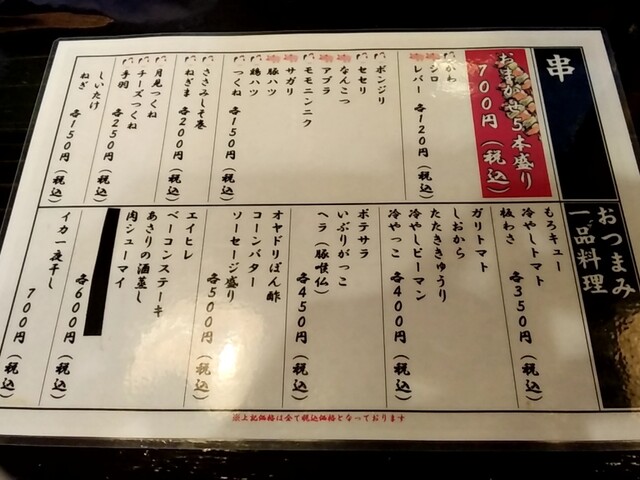 串
おまかせ5本盛り
700円（税込）
つかわ
シロ
レバー 各120円（税込）
ボンジリ
セセリ
なんこつ
アブラ
モモニンニク
サガリ
豚ハツ
鶏ハツ
つくね 各150円（税込）
ささみしそ巻
ねぎま 各200円（税込）
月見つくね
チーズつくね
手羽 各250円（税込）
しいたけ
ねぎ 各150円（税込）
おつまみ
一品料理
もろキュー
冷やしトマト
板わさ 各350円（税込）
ガリトマト
しおから
たたききゅうり
冷やしピーマン
冷やっこ 各400円（税込）
ポテサラ
いぶりがっこ
ヘラ（豚喉仏） 各450円（税込）
オヤドリぽん酢
コーンバター
ソーセージ盛り 各500円（税込）
エイヒレ
ベーコンステーキ
あさりの酒蒸し
肉シューマイ
各600円（税込）
イカ一夜干し 700円（税込）
※上記価格は全て税込価格となっております